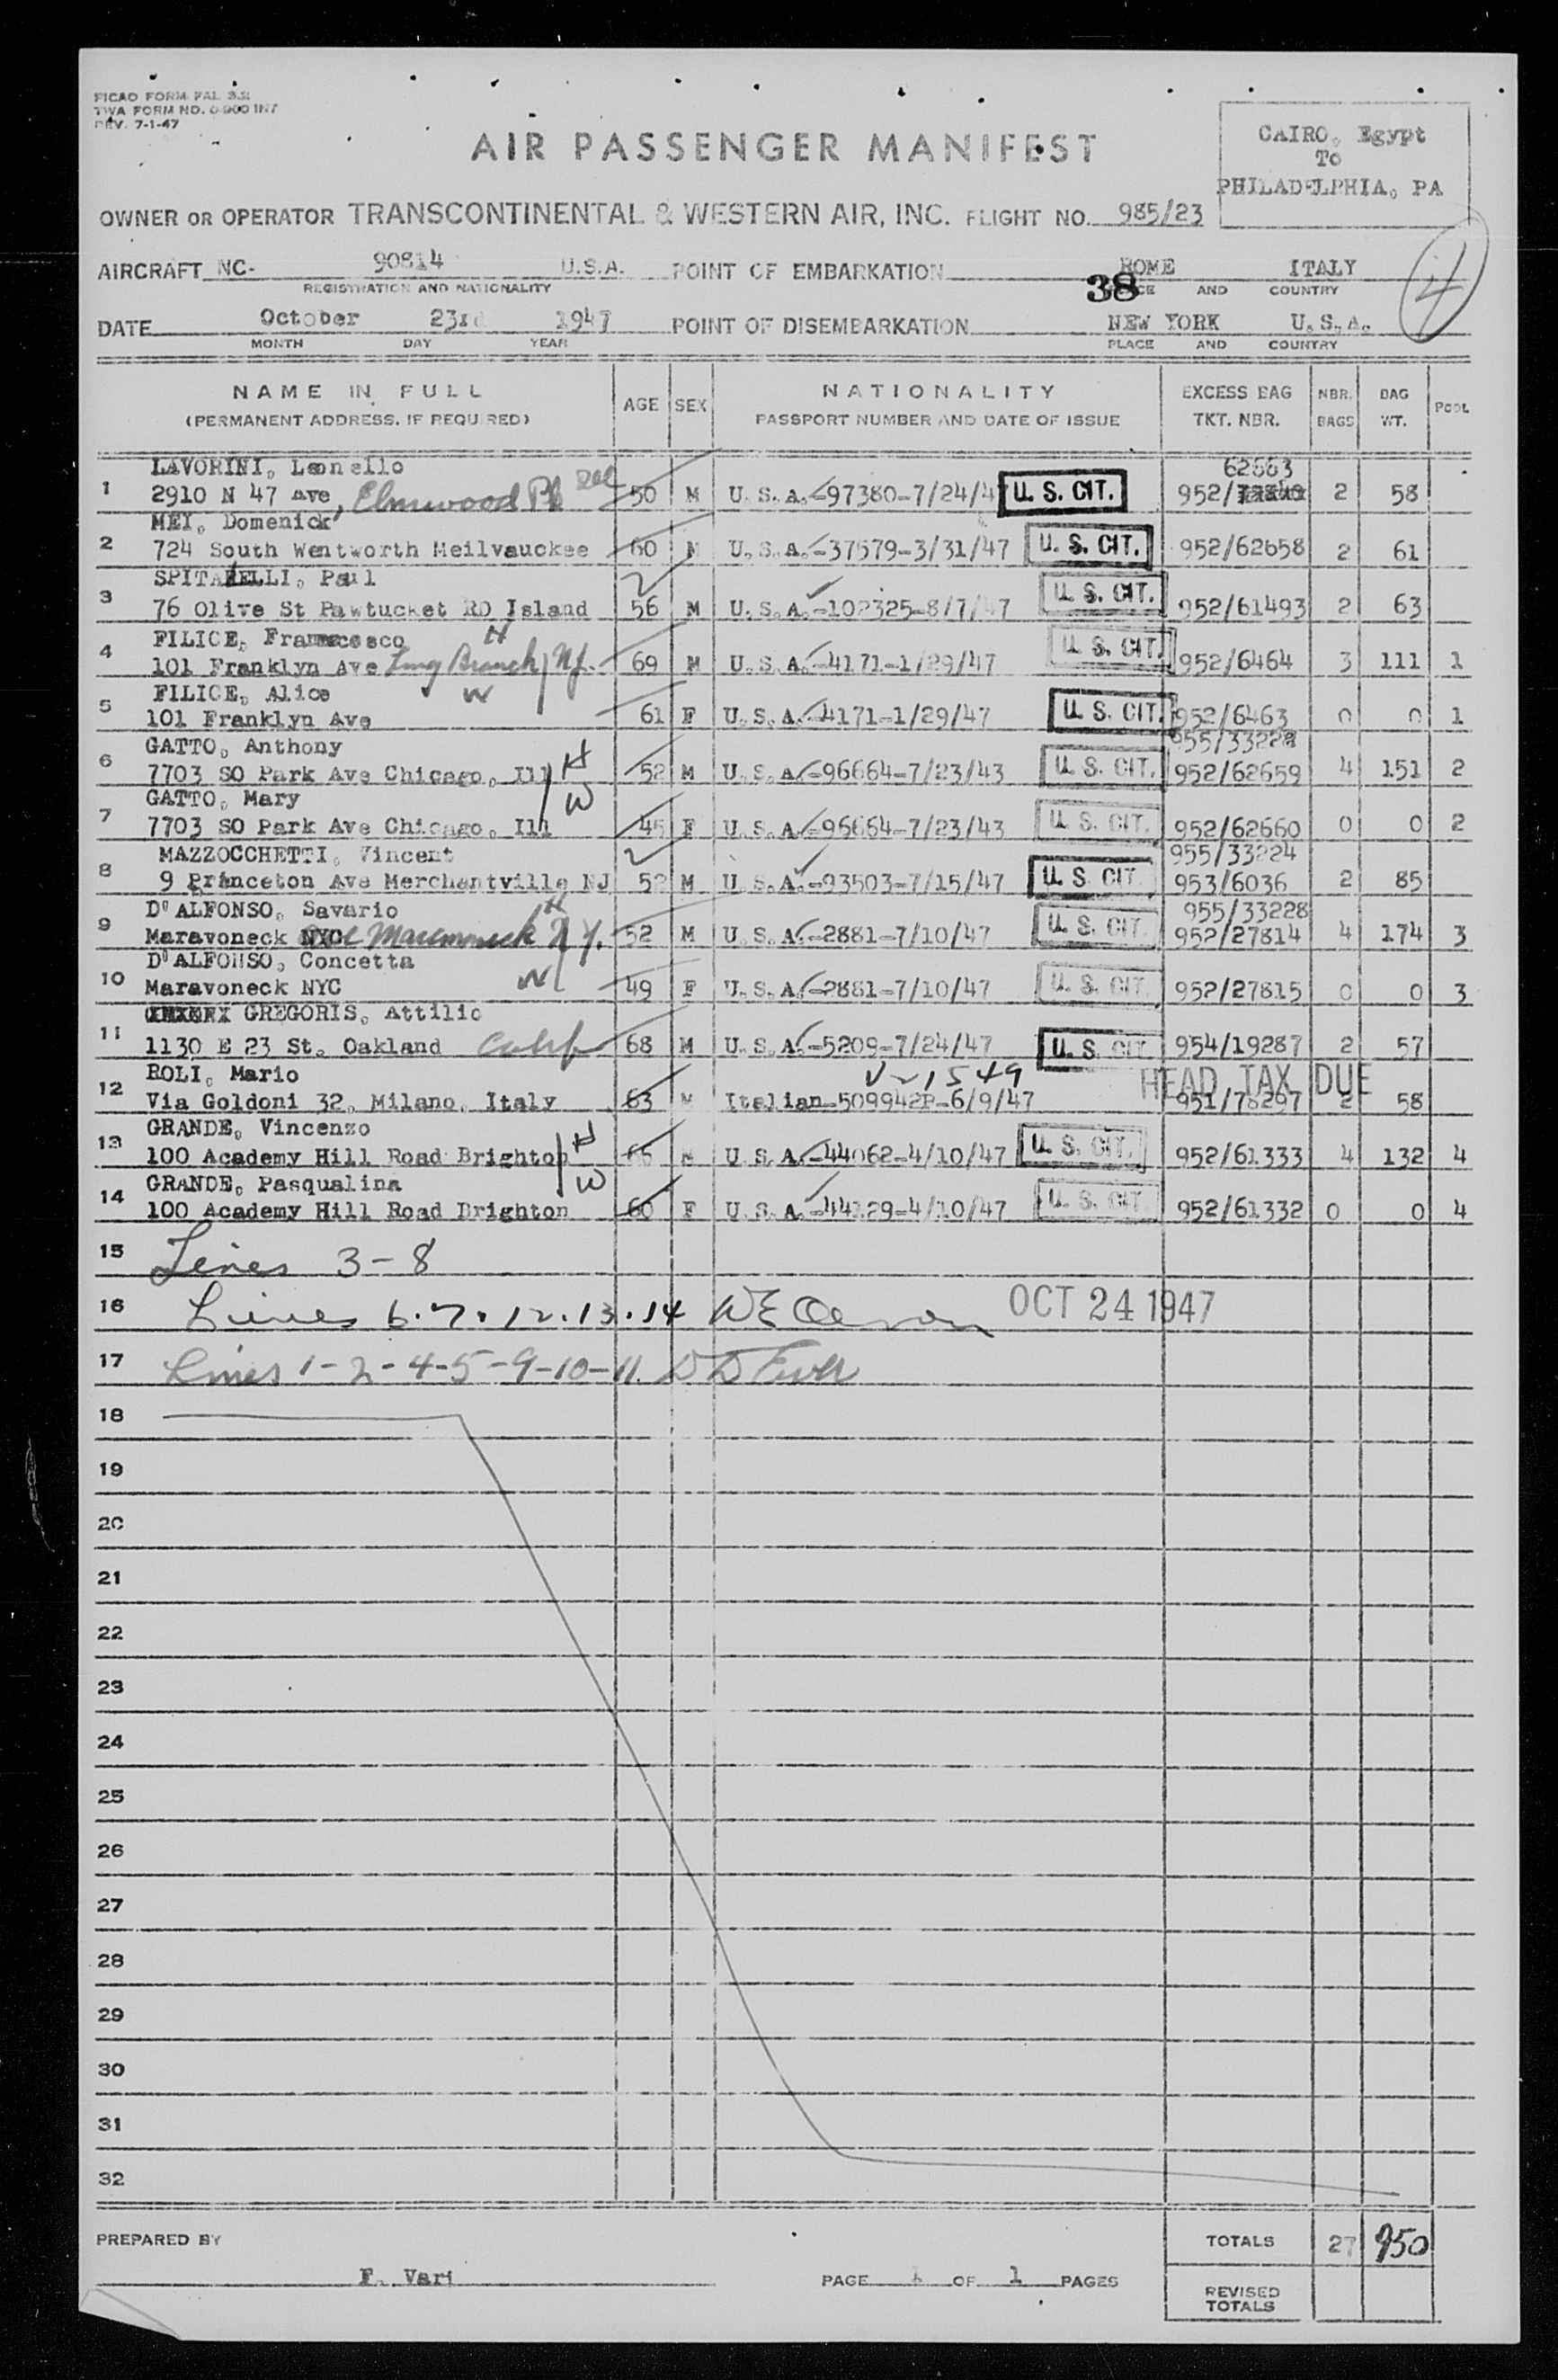 PICAO FORM FAL 3.2
TWA FORM NO. 0-900 INT
REV. 7-1-47
AIR PASSENGER MANIFEST
CAIRO, Egypt
To
PHILADELPHIA, PA
OWNER OR OPERATOR TRANSCONTINENTAL & WESTERN AIR, INC. FLIGHT NO. 985/23
AIRCRAFT NC- 90814 U.S.A. POINT OF EMBARKATION ROME ITALY 4
REGISTRATION AND NATIONALITY 38 AND COUNTRY
DATE October 23rd 1947 POINT OF DISEMBARKATION NEW YORK U.S.A.
MONTH DAY YEAR PLACE AND COUNTRY
NAME IN FULL AGE SEX NATIONALITY EXCESS BAG NBR. BAG POOL
(PERMANENT ADDRESS, IF REQUIRED) PASSPORT NUMBER AND DATE OF ISSUE TKT. NBR. BAGS WT.
LAVORINI, Leonello 62663
1 2910 N 47 Ave, Elmwood Pk Ill 50 M U.S.A.-97380-7/24/4 U. S. CIT. 952/ 2 58
MEI, Domenick
2 724 South Wentworth Meilvauckee 60 M U.S.A.-37579-3/31/47 U. S. CIT. 952/62658 2 61
SPITARELLI, Paul
3 76 Olive St Pawtucket RD Island 56 M U.S.A.-102325-8/7/47 U. S. CIT. 952/61493 2 63
FILICE, Francesco H
4 101 Franklyn Ave Long Branch, N.J. 69 M U.S.A.-4171-1/29/47 U. S. CIT. 952/6464 3 111 1
FILICE, Alice W
5 101 Franklyn Ave 61 F U.S.A.-4171-1/29/47 U. S. CIT. 952/6463 0 0 1
GATTO, Anthony 955/33223
6 7703 SO Park Ave Chicago, Ill H 52 M U.S.A.-96664-7/23/43 U. S. CIT. 952/62659 4 151 2
GATTO, Mary W
7 7703 SO Park Ave Chicago, Ill 45 F U.S.A.-96664-7/23/43 U. S. CIT. 952/62660 0 0 2
MAZZOCCHETTI, Vincent 955/33224
8 9 Princeton Ave Merchentville NJ 52 M U.S.A.-93503-7/15/47 U. S. CIT. 953/6036 2 85
D'ALFONSO, Savario H 955/33228
9 Maravoneck NYC Mamaroneck N.Y. 52 M U.S.A.-2881-7/10/47 U. S. CIT. 952/27814 4 174 3
D'ALFONSO, Concetta
10 Maravoneck NYC W 49 F U.S.A.-2881-7/10/47 U. S. CIT. 952/27815 0 0 3
GREGORIS, Attilio
11 1130 E 23 St. Oakland Calif 68 M U.S.A.-5209-7/24/47 U. S. CIT. 954/19287 2 57
ROLI, Mario V-1549 HEAD TAX DUE
12 Via Goldoni 32, Milano, Italy 63 M Italian-509942P-6/9/47 951/78297 2 58
GRANDE, Vincenzo H
13 100 Academy Hill Road Brighton 66 M U.S.A.-44062-4/10/47 U. S. CIT. 952/61333 4 132 4
GRANDE, Pasqualina W
14 100 Academy Hill Road Brighton 60 F U.S.A.-44129-4/10/47 U. S. CIT. 952/61332 0 0 4
15 Lines 3-8
16 Lines 6.7.12.13.14 OCT 24 1947
17 Lines 1-2-4-5-9-10-11
18
19
20
21
22
23
24
25
26
27
28
29
30
31
32
PREPARED BY TOTALS 27 950
F. Vari PAGE 1 OF 1 PAGES
REVISED
TOTALS